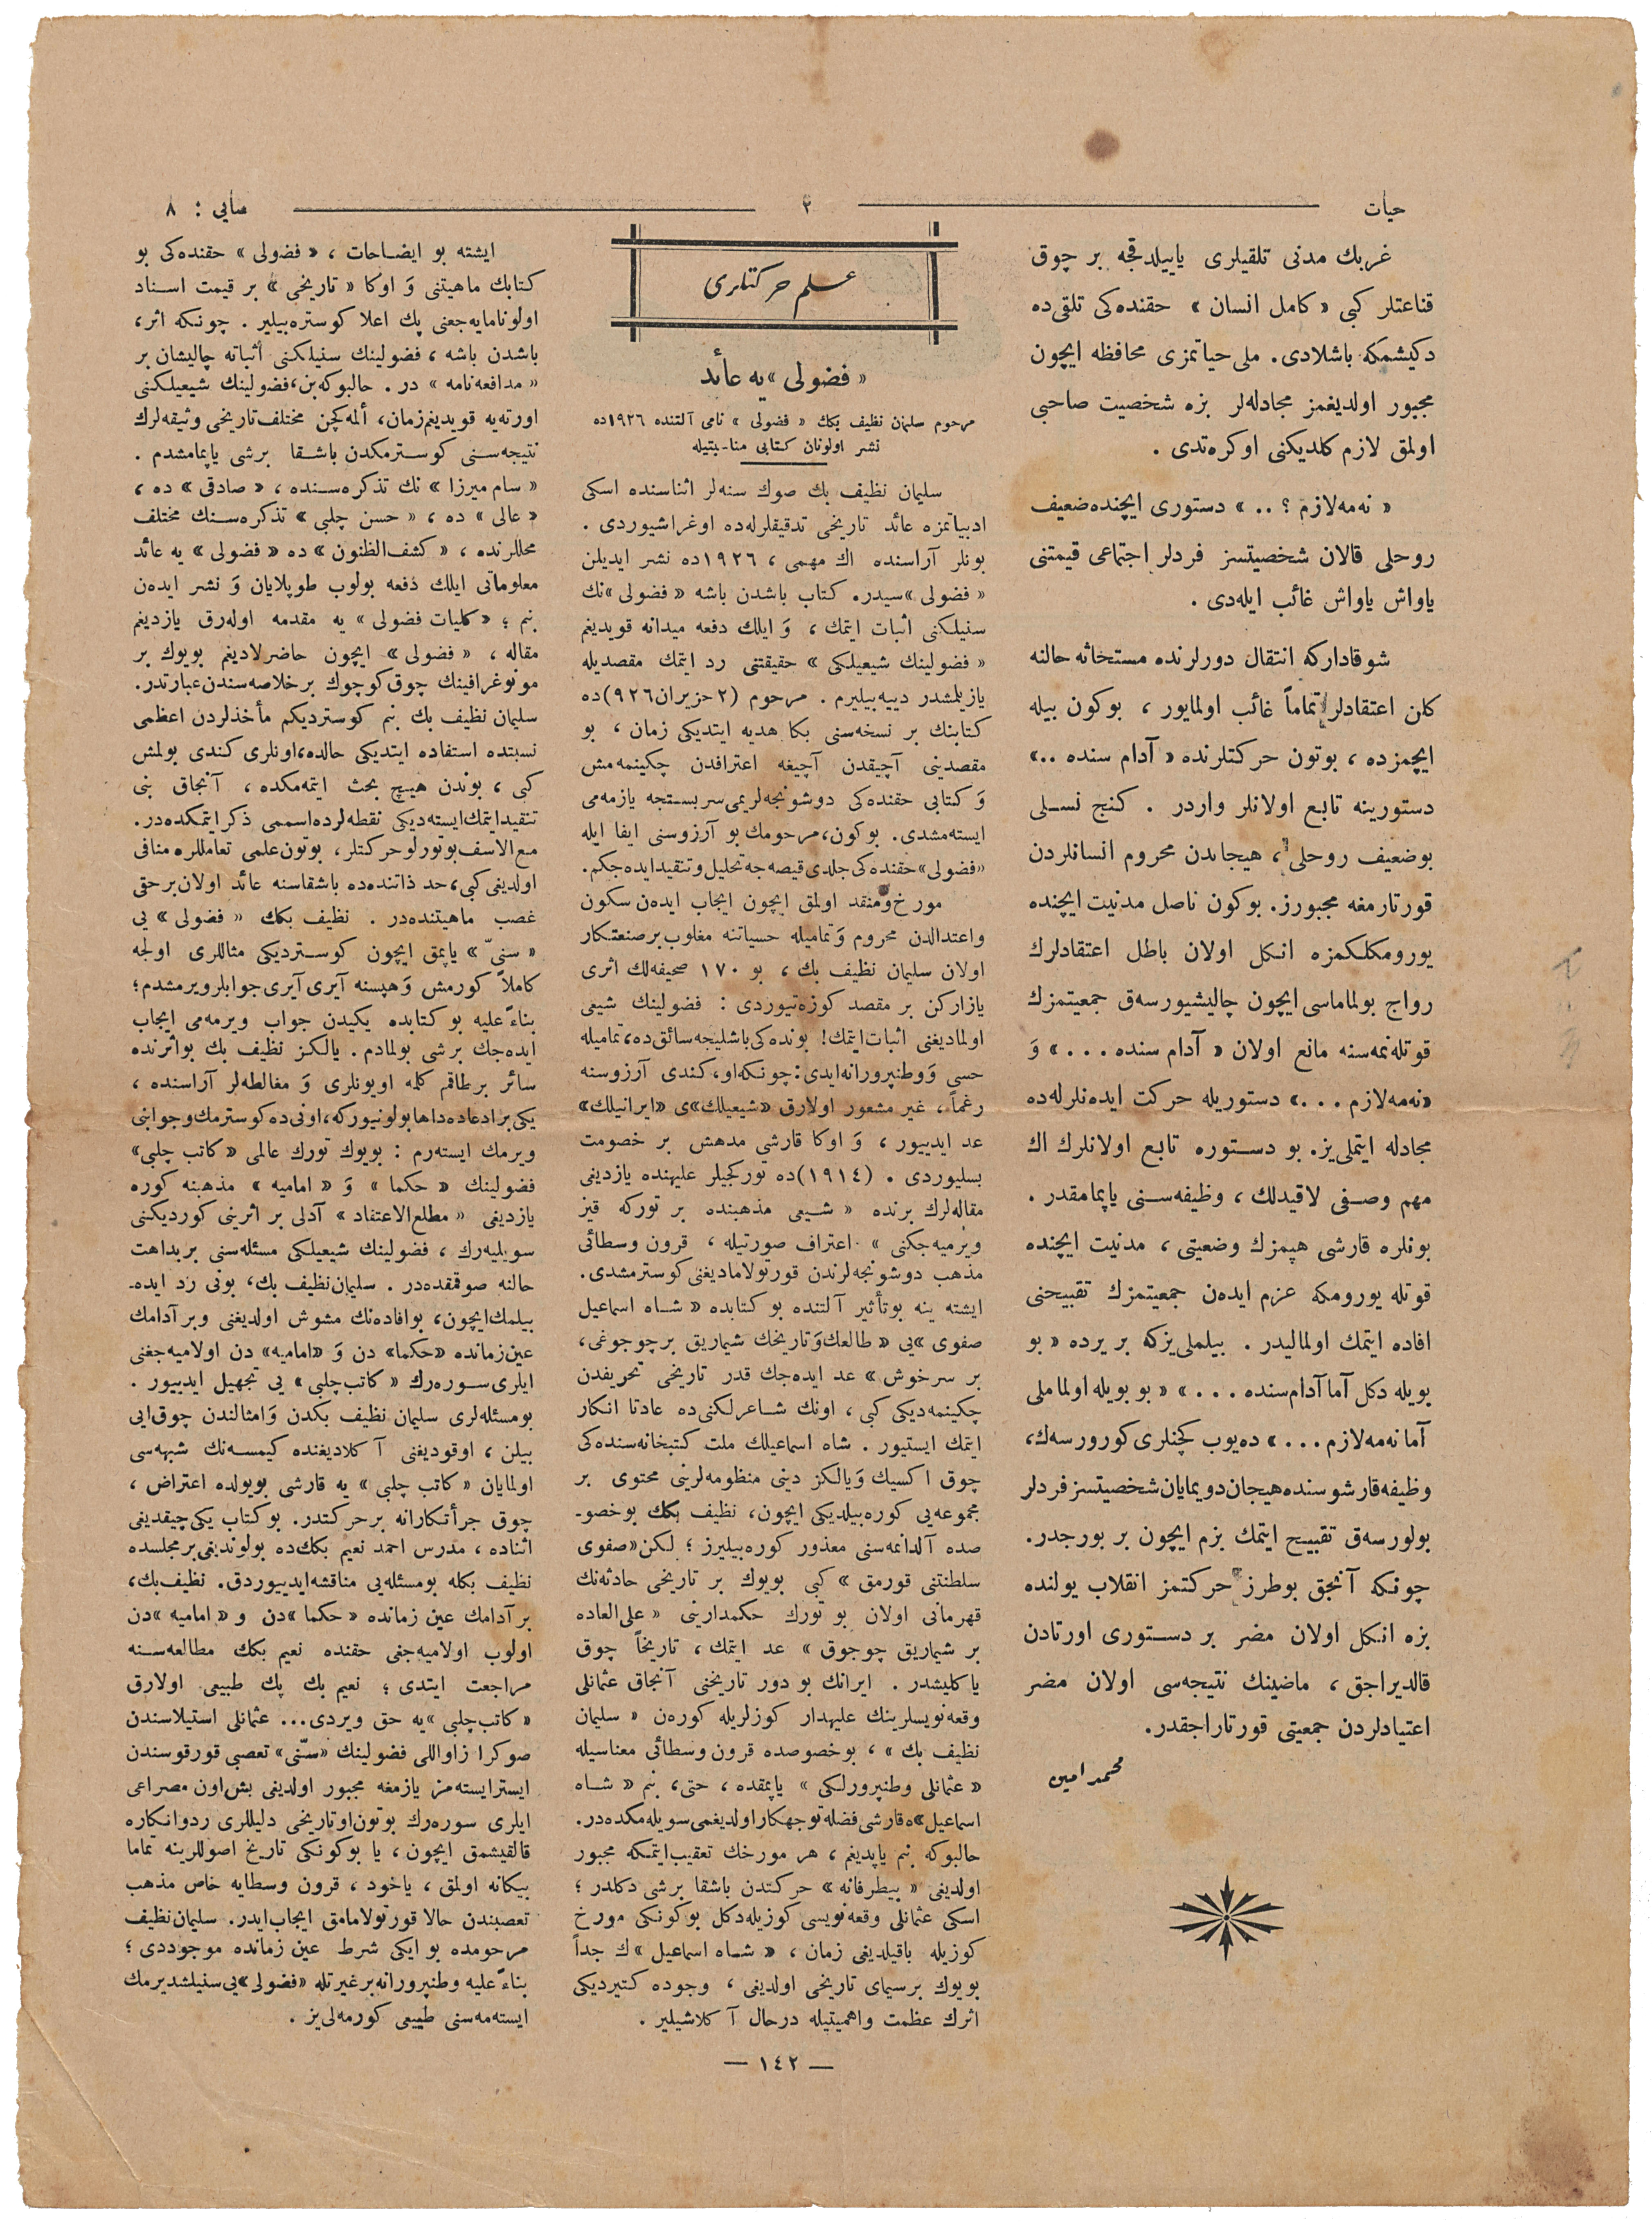 حيات
٢
صايى : ٨
غربك مدنى تلقيلرى ياييلدقجه بر چوق
قناعتلر كبى « كامل انسان » حقنده‌كى تلقى ده
دكيشمكه باشلادى. ملى حياتمزى محافظه ايچون
مجبور اولديغمز مجادله‌لر بزه شخصيت صاحبى
اولمق لازم كلديكنى اوكره‌تدى .
« نه‌مه‌لازم ؟ .. » دستورى ايچنده ضعيف
روحلى قالان شخصيتسز فردلر اجتماعى قيمتنى
ياواش ياواش غائب ايله‌دى .
شوقاداركه انتقال دورلرنده مستحاثه حالنه
كلن اعتقادلر تماماً غائب اولمايور ، بوكون بيله
ايچمزده ، بوتون حركتلرنده « آدام سنده .. »
دستورينه تابع اولانلر واردر . كنج نسلى
بوضعيف روحلى ، هيجاندن محروم انسانلردن
قورتارمغه مجبورز. بوكون ناصل مدنيت ايچنده
يورومكلكمزه انكل اولان باطل اعتقادلرك
رواج بولماماسى ايچون چاليشيورسه‌ق جمعيتمزك
قوتله‌نمه‌سنه مانع اولان « آدام سنده . . . » وَ
«نه‌مه‌لازم . . .» دستوريله حركت ايده‌نلرله‌ده
مجادله ايتملى‌يز. بو دستوره تابع اولانلرك اك
مهم وصفى لاقيدلك ، وظيفه‌سنى ياپمامقدر .
بونلره قارشى هپمزك وضعيتى ، مدنيت ايچنده
قوتله يورومكه عزم ايده‌ن جمعيتمزك تقبيحنى
افاده ايتمك اولماليدر . بيلملى‌يزكه بر يرده « بو
بويله دكل آما آدام سنده . . . » « بو بويله اولماملى
آما نه‌مه‌لازم . . . » ده‌يوب كچنلرى كورورسه‌ك،
وظيفه قارشوسنده هيجان دويمايان شخصيتسز فردلر
بولورسه‌ق تقبيح ايتمك بزم ايچون بر بورجدر.
چونكه آنجق بوطرز حركتمز انقلاب يولنده
بزه انكل اولان مضر بر دستورى اورتادن
قالديراجق ، ماضينك نتيجه‌سى اولان مضر
اعتيادلردن جمعيتى قورتاراجقدر.
محمد امين
علم حركتلرى
« فضولى »يه عائد
مرحوم سليمان نظيف بكك « فضولى » نامى آلتنده ١٩٢٦ده
نشر اولونان كتابى مناسبتيله
سليمان نظيف بك صوك سنه‌لر اثناسنده اسكى
ادبياتمزه عائد تاريخى تدقيقلرله‌ده اوغراشيوردى .
بونلر آراسنده اك مهمى ، ١٩٢٦ده نشر ايديلن
« فضولى »سيدر. كتاب باشدن باشه « فضولى »نك
سنيلكنى اثبات ايتمك ، وَ ايلك دفعه ميدانه قويديغم
« فضولينك شيعيلكى » حقيقتنى رد ايتمك مقصديله
يازيلمشدر دييه‌بيليرم . مرحوم (٢ حزيران ٩٢٦)ده
كتابنك بر نسخه‌سنى بكا هديه ايتديكى زمان ، بو
مقصدينى آچيقدن آچيغه اعترافدن چكينمه‌مش
وَ كتابى حقنده‌كى دوشونجه‌لريمى سربستجه يازمه‌مى
ايسته‌مشدى. بوكون، مرحومك بو آرزوسنى ايفا ايله
«فضولى» حقنده‌كى جلدى قيصه‌جه تحليل وتنقيد ايده‌جكم.
مورخ ومنقد اولمق ايچون ايجاب ايده‌ن سكون
واعتدالدن محروم وَ تماميله حسياتنه مغلوب بر صنعتكار
اولان سليمان نظيف بك ، بو ١٧٠ صحيفه‌لك اثرى
يازاركن بر مقصد كوزه‌تيوردى : فضولينك شيعى
اولماديغنى اثبات ايتمك! بونده‌كى باشليجه سائق ده، تماميله
حسى وَ وطنپرورانه ايدى: چونكه او، كندى آرزوسنه
رغماً ، غير مشعور اولارق «شيعيلك»ى «ايرانيلك»
عد ايدييور ، وَ اوكا قارشى مدهش بر خصومت
بسليوردى . (١٩١٤)ده توركجيلر عليهنده يازديغى
مقاله‌لرك برنده « شيعى مذهبنده بر توركه قيز
ويرميه‌جكنى » اعتراف صورتيله ، قرون وسطائى
مذهب دوشونجه‌لرندن قورتولاماديغنى كوسترمشدى.
ايشته ينه بوتأثير آلتنده بو كتابده « شاه اسماعيل
صفوى »يى « طالعك وَ تاريخك شيماريق بر چوجوغى،
بر سرخوش » عد ايده‌جك قدر تاريخى تحريفدن
چكينمه‌ديكى كبى ، اونك شاعرلكنى ده عادتا انكار
ايتمك ايستيور . شاه اسماعيلك ملت كتبخانه‌سنده‌كى
چوق اكسيك وَ يالكز دينى منظومه‌لرينى محتوى بر
مجموعه‌يى كوره‌بيلديكى ايچون، نظيف بكك بوخصو-
صده آلدانمه‌سنى معذور كوره‌بيليرز ؛ لكن «صفوى
سلطنتنى قورمق » كبى بويوك بر تاريخى حادثه‌نك
قهرمانى اولان بو تورك حكمدارينى « على العاده
بر شيماريق چوجوق » عد ايتمك ، تاريخاً چوق
ياكليشدر . ايرانك بو دور تاريخنى آنجاق عثمانلى
وقعه‌نويسلرينك عليهدار كوزلريله كوره‌ن « سليمان
نظيف بك » ، بوخصوصده قرون وسطائى معناسيله
« عثمانلى وطنپرورلكى » ياپمقده ، حتى، بنم « شاه
اسماعيل»ه قارشى فضله توجهكار اولديغمى سويله‌مكده‌در.
حالبوكه بنم ياپديغم ، هر مورخك تعقيب ايتمكه مجبور
اولديغى « بيطرفانه » حركتدن باشقا برشى دكلدر ؛
اسكى عثمانلى وقعه‌نويسى كوزيله دكل بوكونكى مورخ
كوزيله باقيلديغى زمان ، « شاه اسماعيل »ك جداً
بويوك بر سيماى تاريخى اولديغى ، وجوده كتيرديكى
اثرك عظمت واهميتيله درحال آكلاشيلير .
ايشته بو ايضاحات ، « فضولى » حقنده‌كى بو
كتابك ماهيتنى وَ اوكا « تاريخى » بر قيمت اسناد
اولونامايه‌جغنى پك اعلا كوستره‌بيلير . چونكه اثر،
باشدن باشه ، فضولينك سنيلكنى اثباته چاليشان بر
« مدافعه‌نامه » در . حالبوكه بن، فضولينك شيعيلكنى
اورته‌يه قويديغم زمان، ألمه كچن مختلف تاريخى وثيقه‌لرك
نتيجه‌سنى كوسترمكدن باشقا برشى ياپمامشدم .
« سام ميرزا » نك تذكره‌سنده ، « صادقى » ده ،
« عالى » ده ، « حسن چلبى » تذكره‌سنك مختلف
محللرنده ، « كشف الظنون » ده « فضولى » يه عائد
معلوماتى ايلك دفعه بولوب طوپلايان وَ نشر ايده‌ن
بنم ؛ « كليات فضولى » يه مقدمه اوله‌رق يازديغم
مقاله ، « فضولى » ايچون حاضرلاديغم بويوك بر
مونوغرافينك چوق كوچوك بر خلاصه‌سندن عبارتدر.
سليمان نظيف بك بنم كوسترديكم مأخذلردن اعظمى
نسبتده استفاده ايتديكى حالده، اونلرى كندى بولمش
كبى ، بوندن هيچ بحث ايتمه‌مكده ، آنجاق بنى
تنقيد ايتمك ايسته‌ديكى نقطه‌لرده اسممى ذكر ايتمكده‌در.
مع الاسف بوتورلو حركتلر، بوتون علمى تعامللره منافى
اولديغى كبى، حد ذاتنده‌ده باشقاسنه عائد اولان بر حقى
غصب ماهيتنده‌در . نظيف بكك « فضولى » يى
« سنىّ » ياپمق ايچون كوسترديكى مثاللرى اولجه
كاملاً كورمش وَ هپسنه آيرى آيرى جوابلر ويرمشدم؛
بناءً عليه بو كتابده يكيدن جواب ويرمه‌مى ايجاب
ايده‌جك برشى بولمادم . يالكز نظيف بك بو اثرنده
سائر بر طاقم كلمه اويونلرى وَ مغالطه‌لر آراسنده ،
يكى بر ادعاده داها بولونيوركه، اونى ده كوسترمك وجوابنى
ويرمك ايسته‌رم : بويوك تورك عالمى « كاتب چلبى»
فضولينك « حكما » وَ « اماميه » مذهبنه كوره
يازديغى « مطلع الاعتقاد » آدلى بر اثرينى كورديكنى
سويليه‌رك ، فضولينك شيعيلكى مسئله‌سنى بر بداهت
حالنه صوقمقده‌در . سليمان نظيف بك، بونى رد ايده-
بيلمك ايچون، بو افاده‌نك مشوش اولديغنى وبر آدامك
عين زمانده «حكما» دن وَ «اماميه» دن اولاميه‌جغنى
ايلرى سوره‌رك « كاتب چلبى » يى تجهيل ايدييور .
بو مسئله‌لرى سليمان نظيف بكدن وَ امثالندن چوق ايى
بيلن ، اوقوديغنى آكلاديغنده كيمسه‌نك شبهه‌سى
اولمايان « كاتب چلبى » يه قارشى بويولده اعتراض ،
چوق جرأتكارانه بر حركتدر. بو كتاب يكى چيقديغى
اثناده ، مدرس احمد نعيم بكك ده بولونديغى بر مجلسده
نظيف بكله بو مسئله‌يى مناقشه ايدييوردق. نظيف بك،
بر آدامك عين زمانده « حكما »دن و « اماميه »دن
اولوب اولاميه‌جغى حقنده نعيم بكك مطالعه‌سنه
مراجعت ايتدى ؛ نعيم بك پك طبيعى اولارق
« كاتب چلبى »يه حق ويردى... عثمانلى استيلاسندن
صوكرا زاواللى فضولينك «سنّى» تعصبى قورقوسندن
ايستر ايسته‌مز يازمغه مجبور اولديغى بش اون مصراعى
ايلرى سوره‌رك بوتون او تاريخى دليللرى رد وانكاره
قالقيشمق ايچون ، يا بوكونكى تاريخ اصوللرينه تماما
بيكانه اولمق ، ياخود ، قرون وسطايه خاص مذهب
تعصبندن حالا قورتولامامق ايجاب ايدر. سليمان نظيف
مرحومده بو ايكى شرط عين زمانده موجوددى ؛
بناءً عليه وطنپرورانه بر غيرتله «فضولى»يى سنيلشديرمك
ايسته‌مه‌سنى طبيعى كورمه‌لى‌يز .
— ١٤٢ —